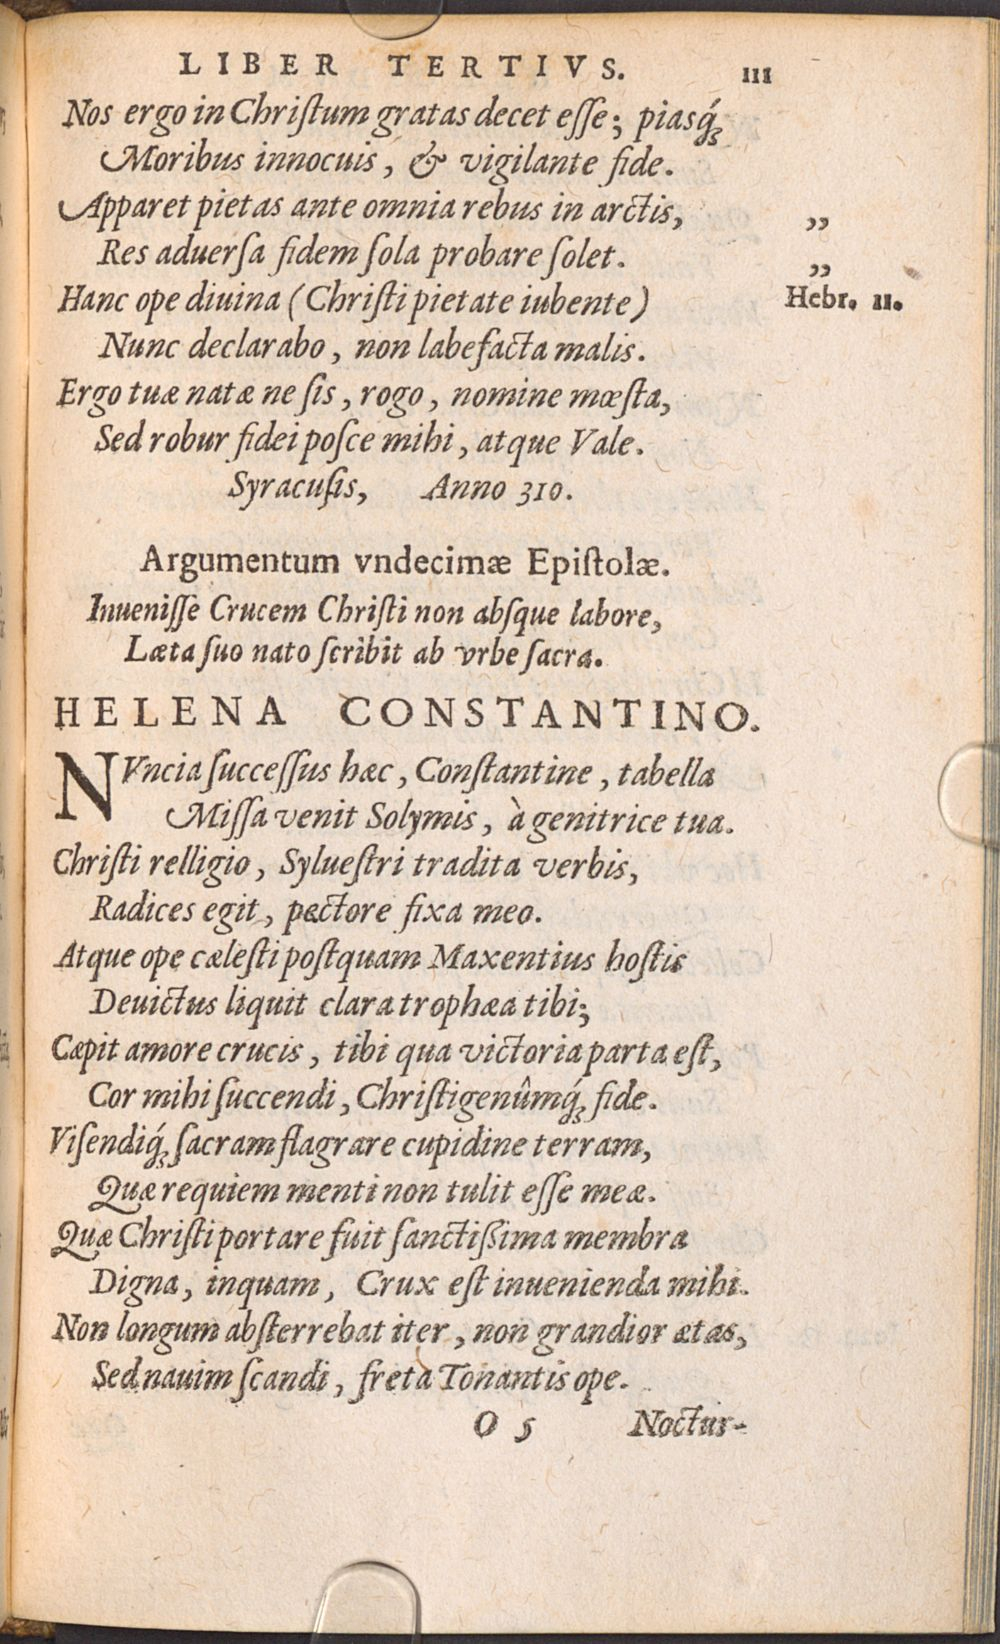 LIBER TERTIVS. 111
Nos ergo in Chriſtum gratas decet eſſe; piasq́ꝫ
Moribus innocuis, & vigilante fide.
Apparet pietas ante omnia rebus in arctis, „
Res aduerſa fidem ſola probare ſolet. „
Hanc ope diuina (Chriſti pietate iubente) Hebr. 11.
Nunc declarabo, non labefacta malis.
Ergo tuæ natæ ne ſis, rogo, nomine mœſta,
Sed robur fidei poſce mihi, atque Vale.
Syracuſis, Anno 310.
Argumentum vndecimæ Epiſtolæ.
Inueniſſe Crucem Chriſti non abſque labore,
Læta ſuo nato ſcribit ab vrbe ſacra.
HELENA CONSTANTINO.
NVncia ſucceſſus hæc, Conſtantine, tabella
Miſſa venit Solymis, à genitrice tua.
Chriſti relligio, Sylueſtri tradita verbis,
Radices egit, pectore fixa meo.
Atque ope cæleſti poſtquam Maxentius hoſtis
Deuictus liquit clara trophæa tibi;
Cæpit amore crucis, tibi qua victoria parta eſt,
Cor mihi ſuccendi, Chriſtigenûmq́ꝫ fide.
Viſendiq́ꝫ ſacram flagrare cupidine terram,
Quæ requiem menti non tulit eſſe meæ.
Quæ Chriſti portare fuit ſanctißima membra
Digna, inquam, Crux eſt inuenienda mihi.
Non longum abſterrebat iter, non grandior ætas,
Sed nauim ſcandi, freta Tonantis ope.
O 5 Noctur-